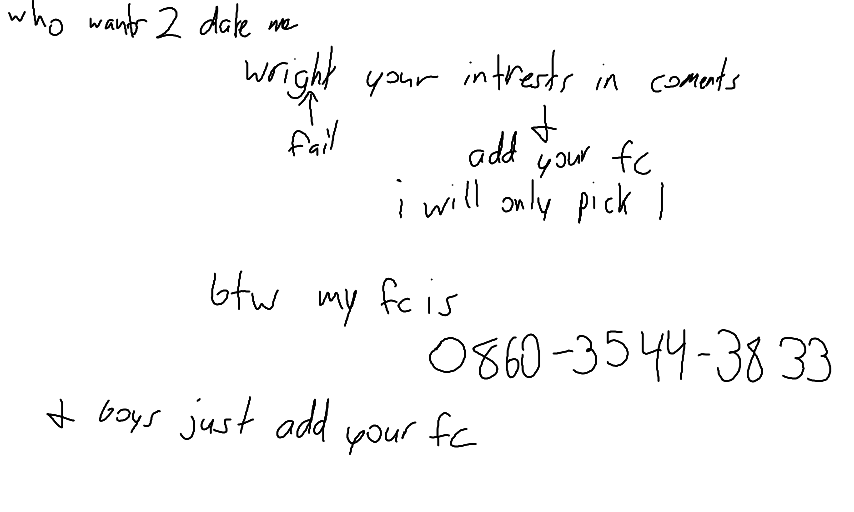 who wants 2 date me
wright your intrests in coments
fail
&
add your fc
i will only pick 1
btw my fc is
0860-3544-3833
& boys just add your fc